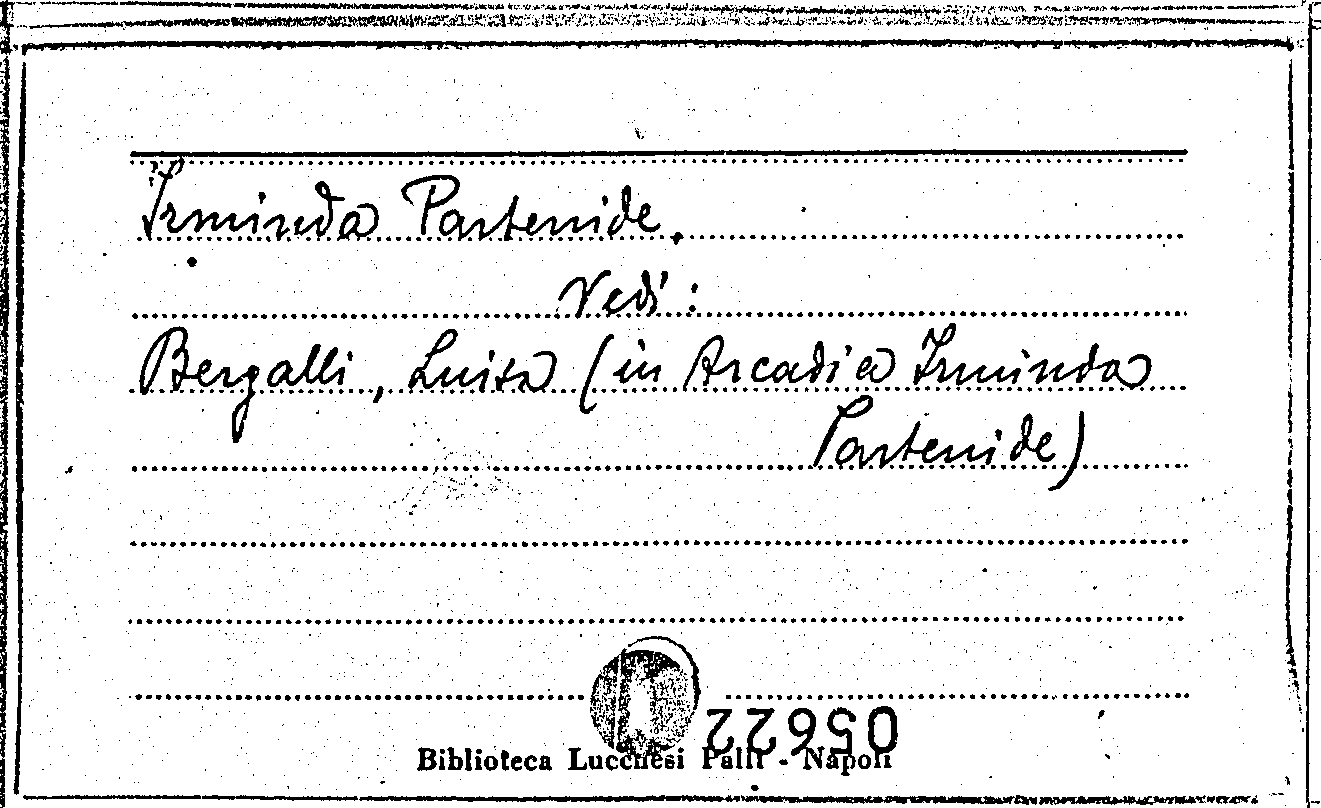 Irminda Partenide.
Vedi:
Bergalli, Luisa (in Arcadia Irminda
Partenide)
05622
Biblioteca Lucchesi Palli - Napoli